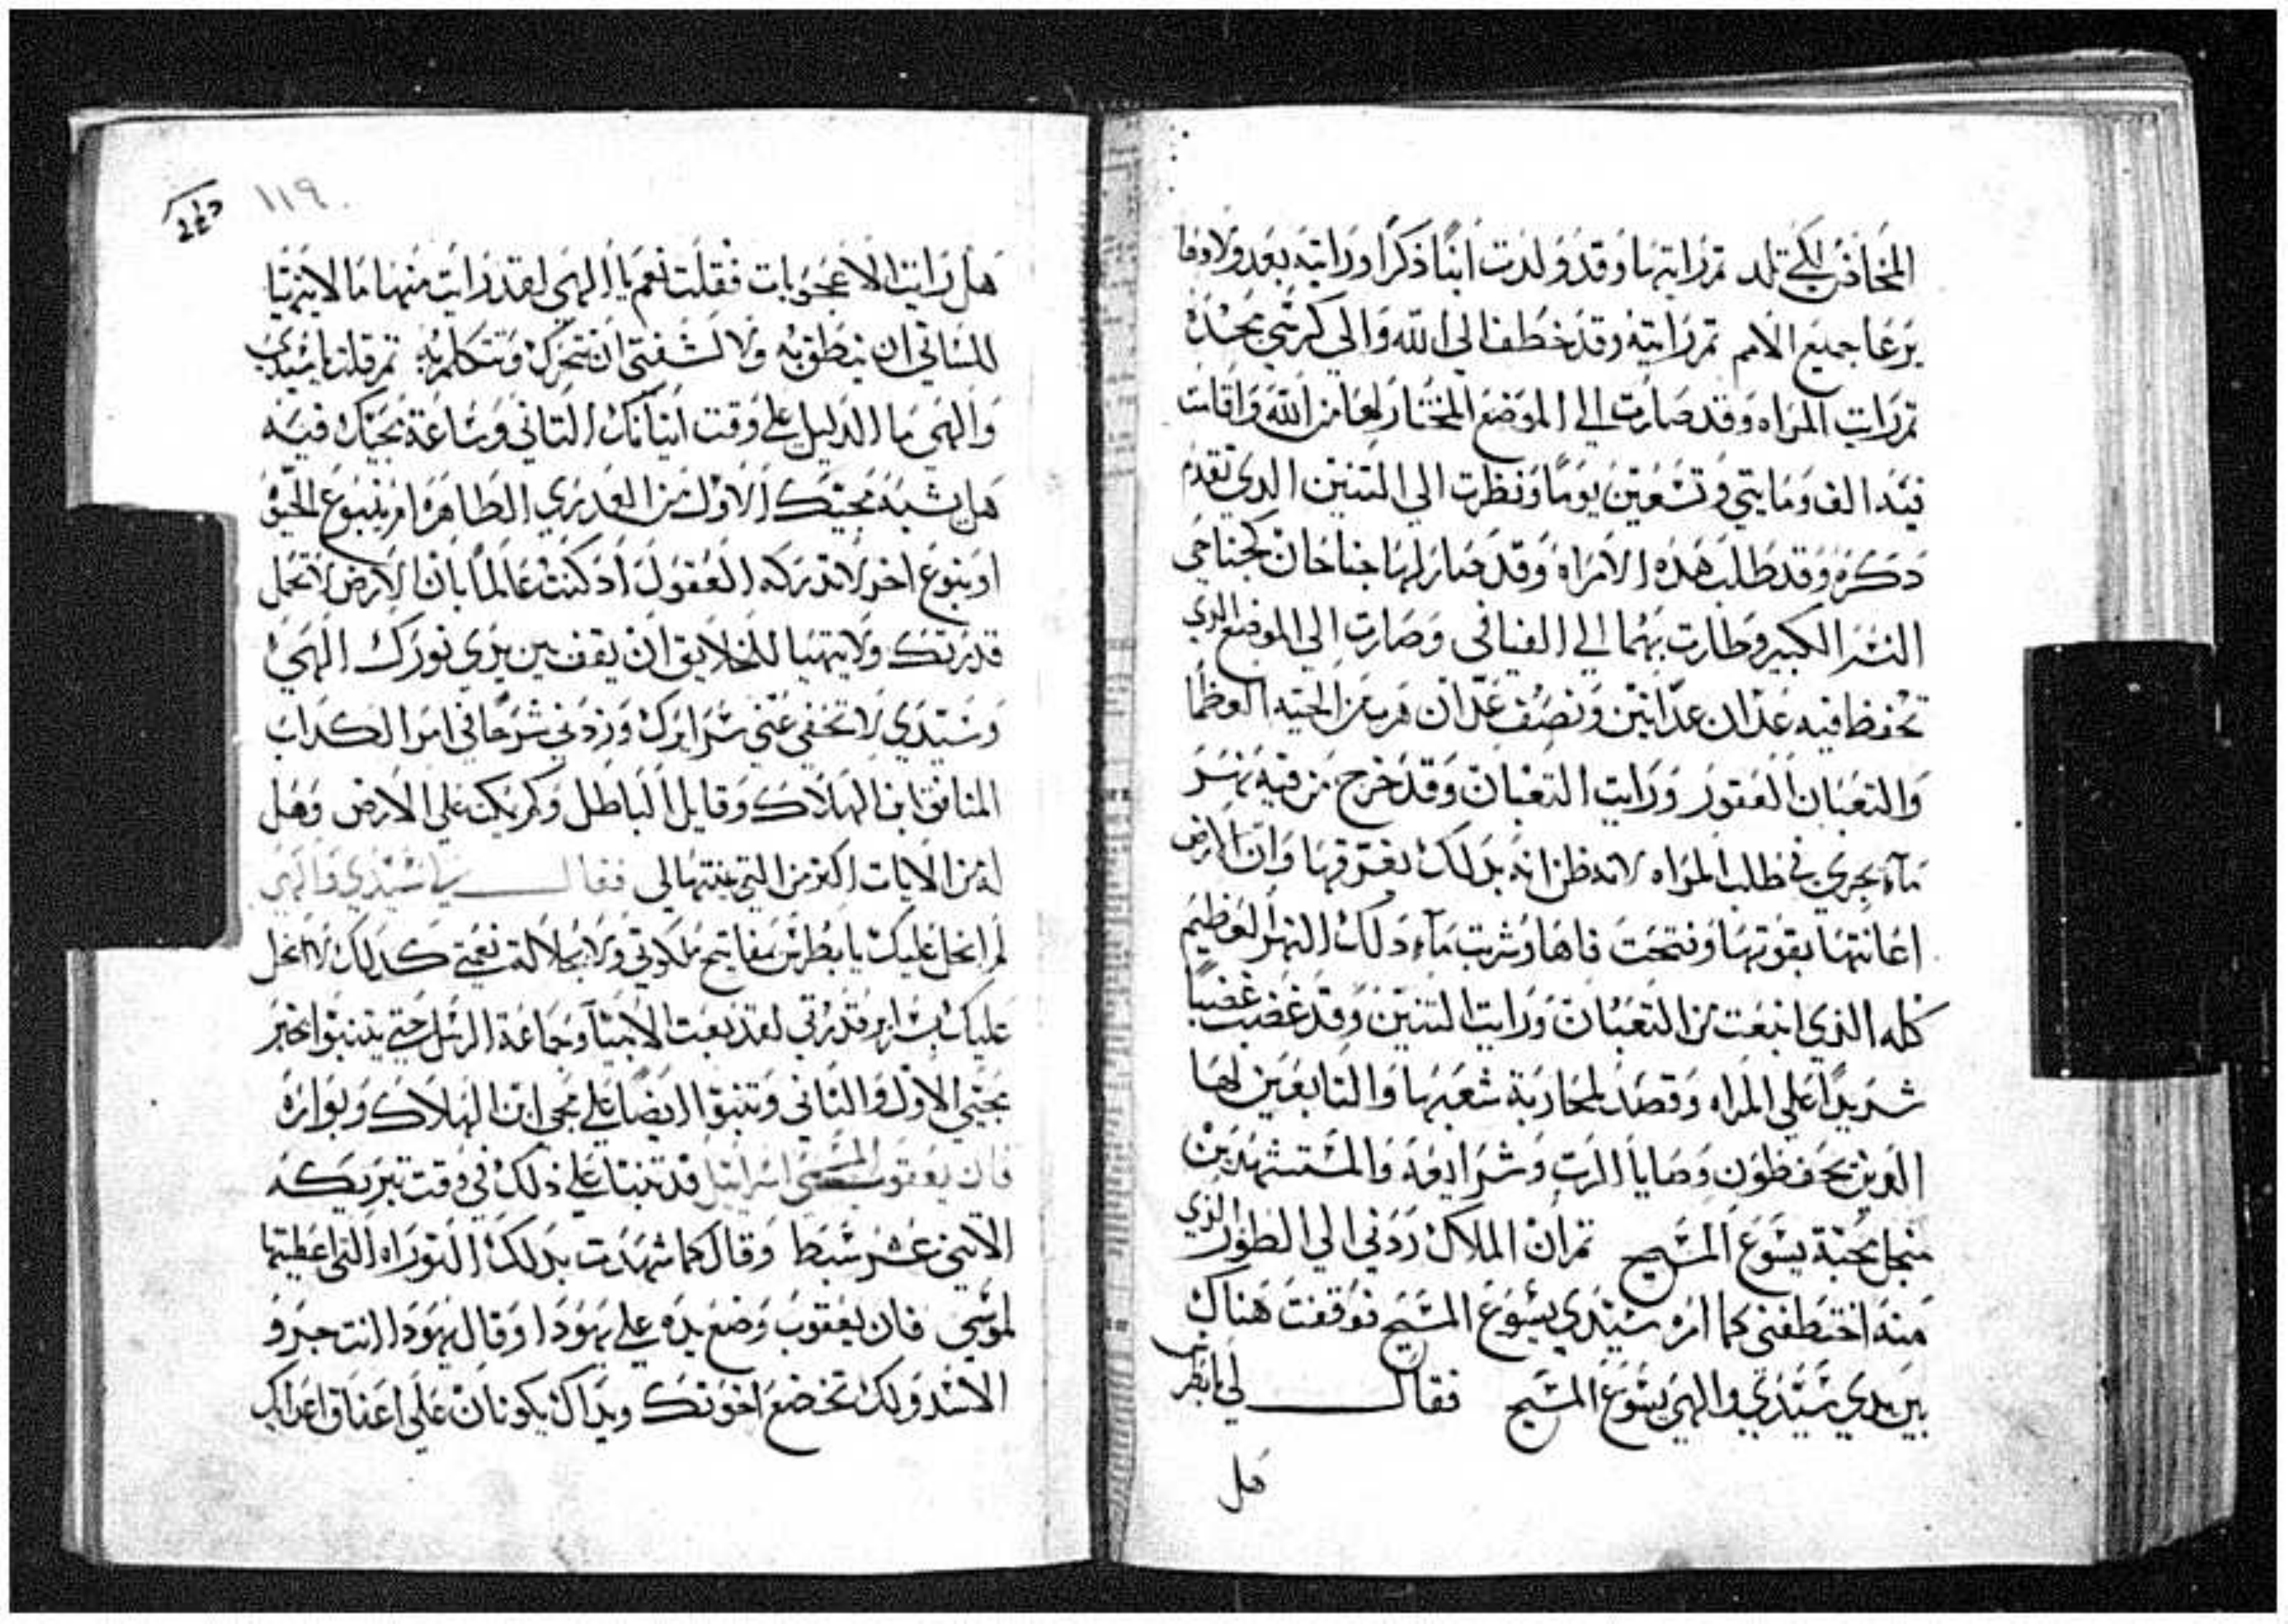 المخاض لكي تلد تم رايتها وقد ولدت ابنًا ذكرًا ورايته بعد ولادها
يرعا جميع الامم تم رايته وقد خطف الي الله والي كرسي مجده
تم رايت المراه وقد صارت الي الموضع المختار لها من الله واقامت
فيه الف ومايتي وتسعين يومًا ونظرت الي التنين الدي تقدم
دكره وقد طلب هده الامراه وقد صار لها جناحان كجناحي
النسر الكبير وطارت بهما الي الفيافي وصارت الي الموضع الدي
تحفظ فيه عدان عدانين ونصف عدان هربا من الحيه العوظما
والتعبان العقور ورايت التعبان وقد خرج من فيه نهر
مآء يجري في طلب المراه لانه ظن انه بدلك يغرقها وان الارض
اعانتها بقوتها وفتحت فاها وشربت مآء دلك النهر العظيم
كله الذي انبعت من التعبان ورايت التنين وقد غضب غضبًا
شديدًا علي المراه وقصد لمحاربة شعبها والتابعين لها
الدين يحفظون وصايا الرب وشرايعه والمستشهدين
منجل محبة يسوع المسيح تم ان الملاك ردني الي الطور الذي
منه اختطفني كما امره سيدي يسوع المسيح فوقفت هناك
بين يدي سيدي والهي يسوع المسيح فقال لي يا بطرس
هل
١١٩
هل رايت الاعجوبات فقلت نعم يا الهي لقد رايت منها ما لا يتهيا
للساني ان ينطق به ولا لشفتي ان تتحرك وتتكلم به تم قلت يا سيدي
والهي ما الدليل علي وقت اتيانك التاني وساعة مجيك فيه
هل يشبه مجيك الاول من العدري الطاهره ام ينبوع الحيوه
او ينبوع اخر لا تدركه العقول اد كنت عالمًا بان الارض لا تحمل
قدرتك ولا يتهيا للخلايق ان يقف بين يدي نورك الهي
وسيدي لا تخفي عني سرايرك وزدني شرحًا في امر الكداب
المنافق ابن الهلاك وقايل الباطل وكم يمكت علي الارض وهل
له من الايات اكتر من التي بينتها لي فقال يا سيدي والهي
لم ابخل عليك يا بطرس بمفاتيح ملكوتي ولا بجلالة نعمتي كدلك لا ابخل
عليك بسراير قدرتي لقد بعت الانبيآ وجماعة الرسل حتي يتنبوا بخبر
مجيي الاول والتاني وتنبوا ايضًا علي مجي ابن الهلاك وبواره
فان يعقوب المسمي اسراييل قد تنبا علي ذلك في وقت تبريكه
الاتني عشر سبط وقال كما شهدت بدلك التوراه التي اعطيتها
لموسي فان يعقوب وضع يده علي يهودا وقال يهودا انت جرو
الاسد ولك تخضع اخوتك ويداك يكونان علي اعناق اعدايك